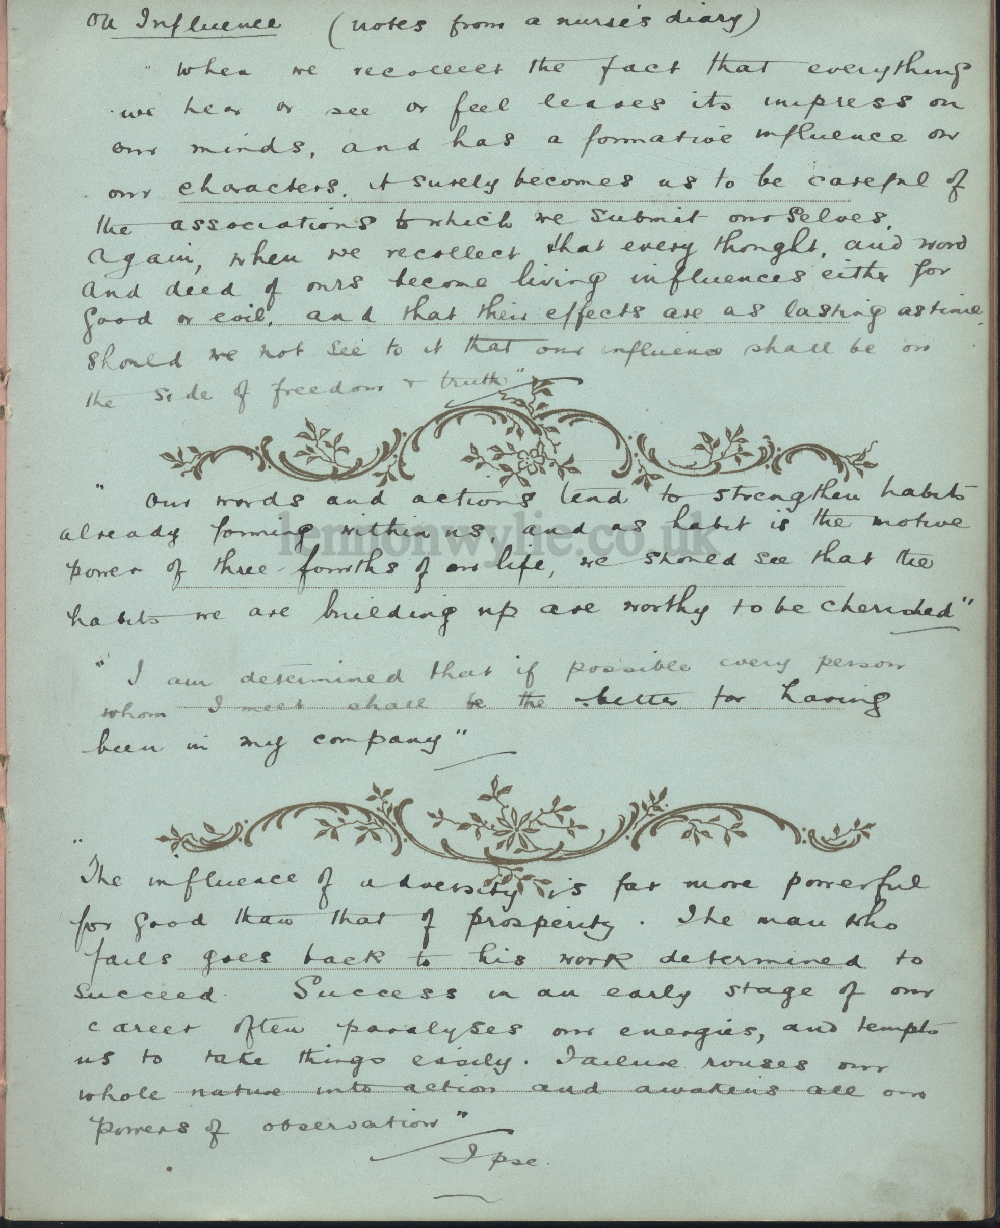 On Influence (notes from a nurse's diary)
" When we recollect the fact that everything
we hear or see or feel leaves its impress on
our minds, and has a formative influence on
our characters, it surely becomes us to be careful of
the associations to which we submit ourselves.
Again, when we recollect that every thought, and word
and deed of ours become living influences either for
good or evil, and that their effects are as lasting as time,
should we not see to it that our influence shall be on
the side of freedom & truth"
" Our words and actions tend to strengthen habits
already forming within us, and as habit is the motive
power of three-fourths of our life, we should see that the
habits we are building up are worthy to be cherished"
" I am determined that if possible every person
whom I meet shall be the better for having
been in my company"
"
The influence of adversity is far more powerful
for good than that of prosperity. The man who
fails goes back to his work determined to
succeed. Success in an early stage of our
career often paralyses our energies, and tempts
us to take things easily. Failure rouses our
whole nature into action and awakens all our
powers of observation"
Ipse.
lennonwylie.co.uk